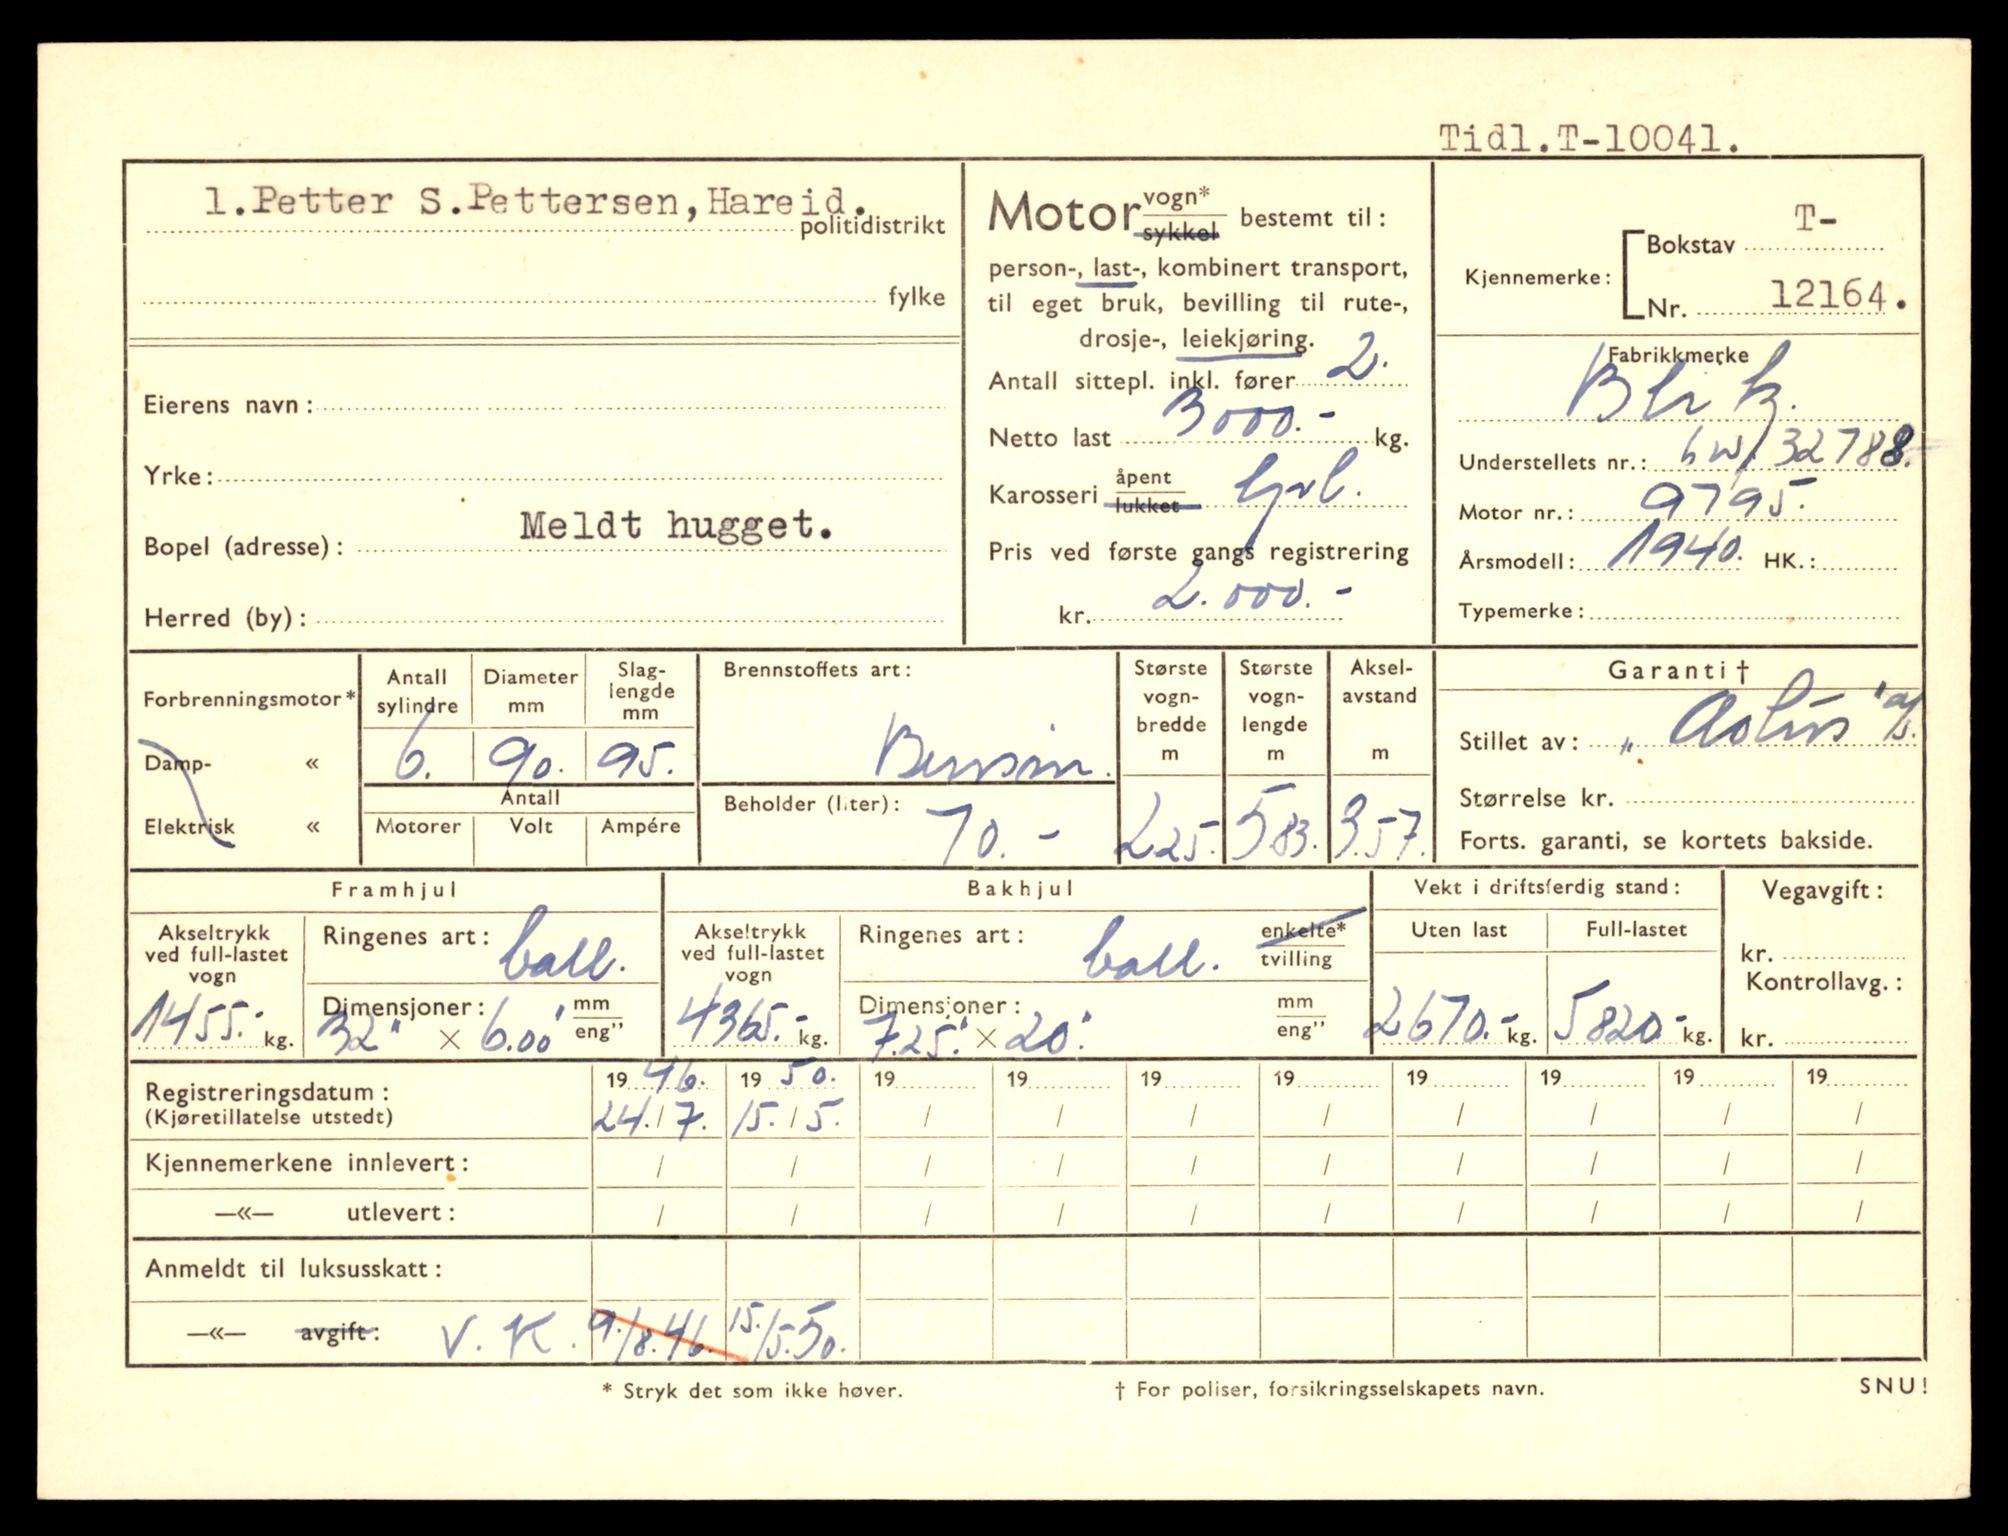 Tidl.T-10041.
1.Petter S.Pettersen, Hareid.
politidistrikt
fylke
Eierens navn:
Yrke:
Meldt hugget.
Bopel (adresse):
Herred (by):
Motor vogn* sykkel bestemt til:
person-, last-, kombinert transport,
til eget bruk, bevilling til rute-,
drosje-, leiekjøring.
Antall sittepl. inkl. fører 2.
Netto last 3000.- kg.
Karosseri åpent lukket
Pris ved første gangs registrering
kr. 2.000.-
Kjennemerke: Bokstav T-
Nr. 12164.
Fabrikkmerke
Blitz.
Understellets nr.: 6W/32788.
Motor nr.: 9795.
Årsmodell: 1940. HK.:
Typemerke:
Forbrenningsmotor*
Damp- «
Elektrisk «
Antall sylindre
6.
Diameter mm
90.
Slag-lengde mm
95.
Antall
Motorer Volt Ampére
Brennstoffets art:
Bensin.
Beholder (liter):
70.-
Største vogn-bredde m
225.
Største vogn-lengde m
583.
Aksel-avstand m
3.57.
Garanti †
Stillet av: „ "a/s.
Størrelse kr.
Forts. garanti, se kortets bakside.
Framhjul
Akseltrykk ved full-lastet vogn
1455.- kg.
Ringenes art: ball.
Dimensjoner: mm eng”
32" × 6.00"
Bakhjul
Akseltrykk ved full-lastet vogn
4365.- kg.
Ringenes art: ball. enkelte* tvilling
Dimensjoner: mm eng”
7.25" × 20"
Vekt i driftsferdig stand:
Uten last Full-lastet
2670.- kg. 5820.- kg.
Vegavgift:
kr.
Kontrollavg.:
kr.
Registreringsdatum: 19 46. 19 50. 19 19 19 19 19 19 19 19
(Kjøretillatelse utstedt) 24./7. 15./5. / / / / / / / /
Kjennemerkene innlevert: / / / / / / / / / /
—«— utlevert: / / / / / / / / / /
Anmeldt til luksusskatt:
—«— avgift: V. K. 9./8.46. 15./5.50.
* Stryk det som ikke høver.
† For poliser, forsikringsselskapets navn.
SNU!